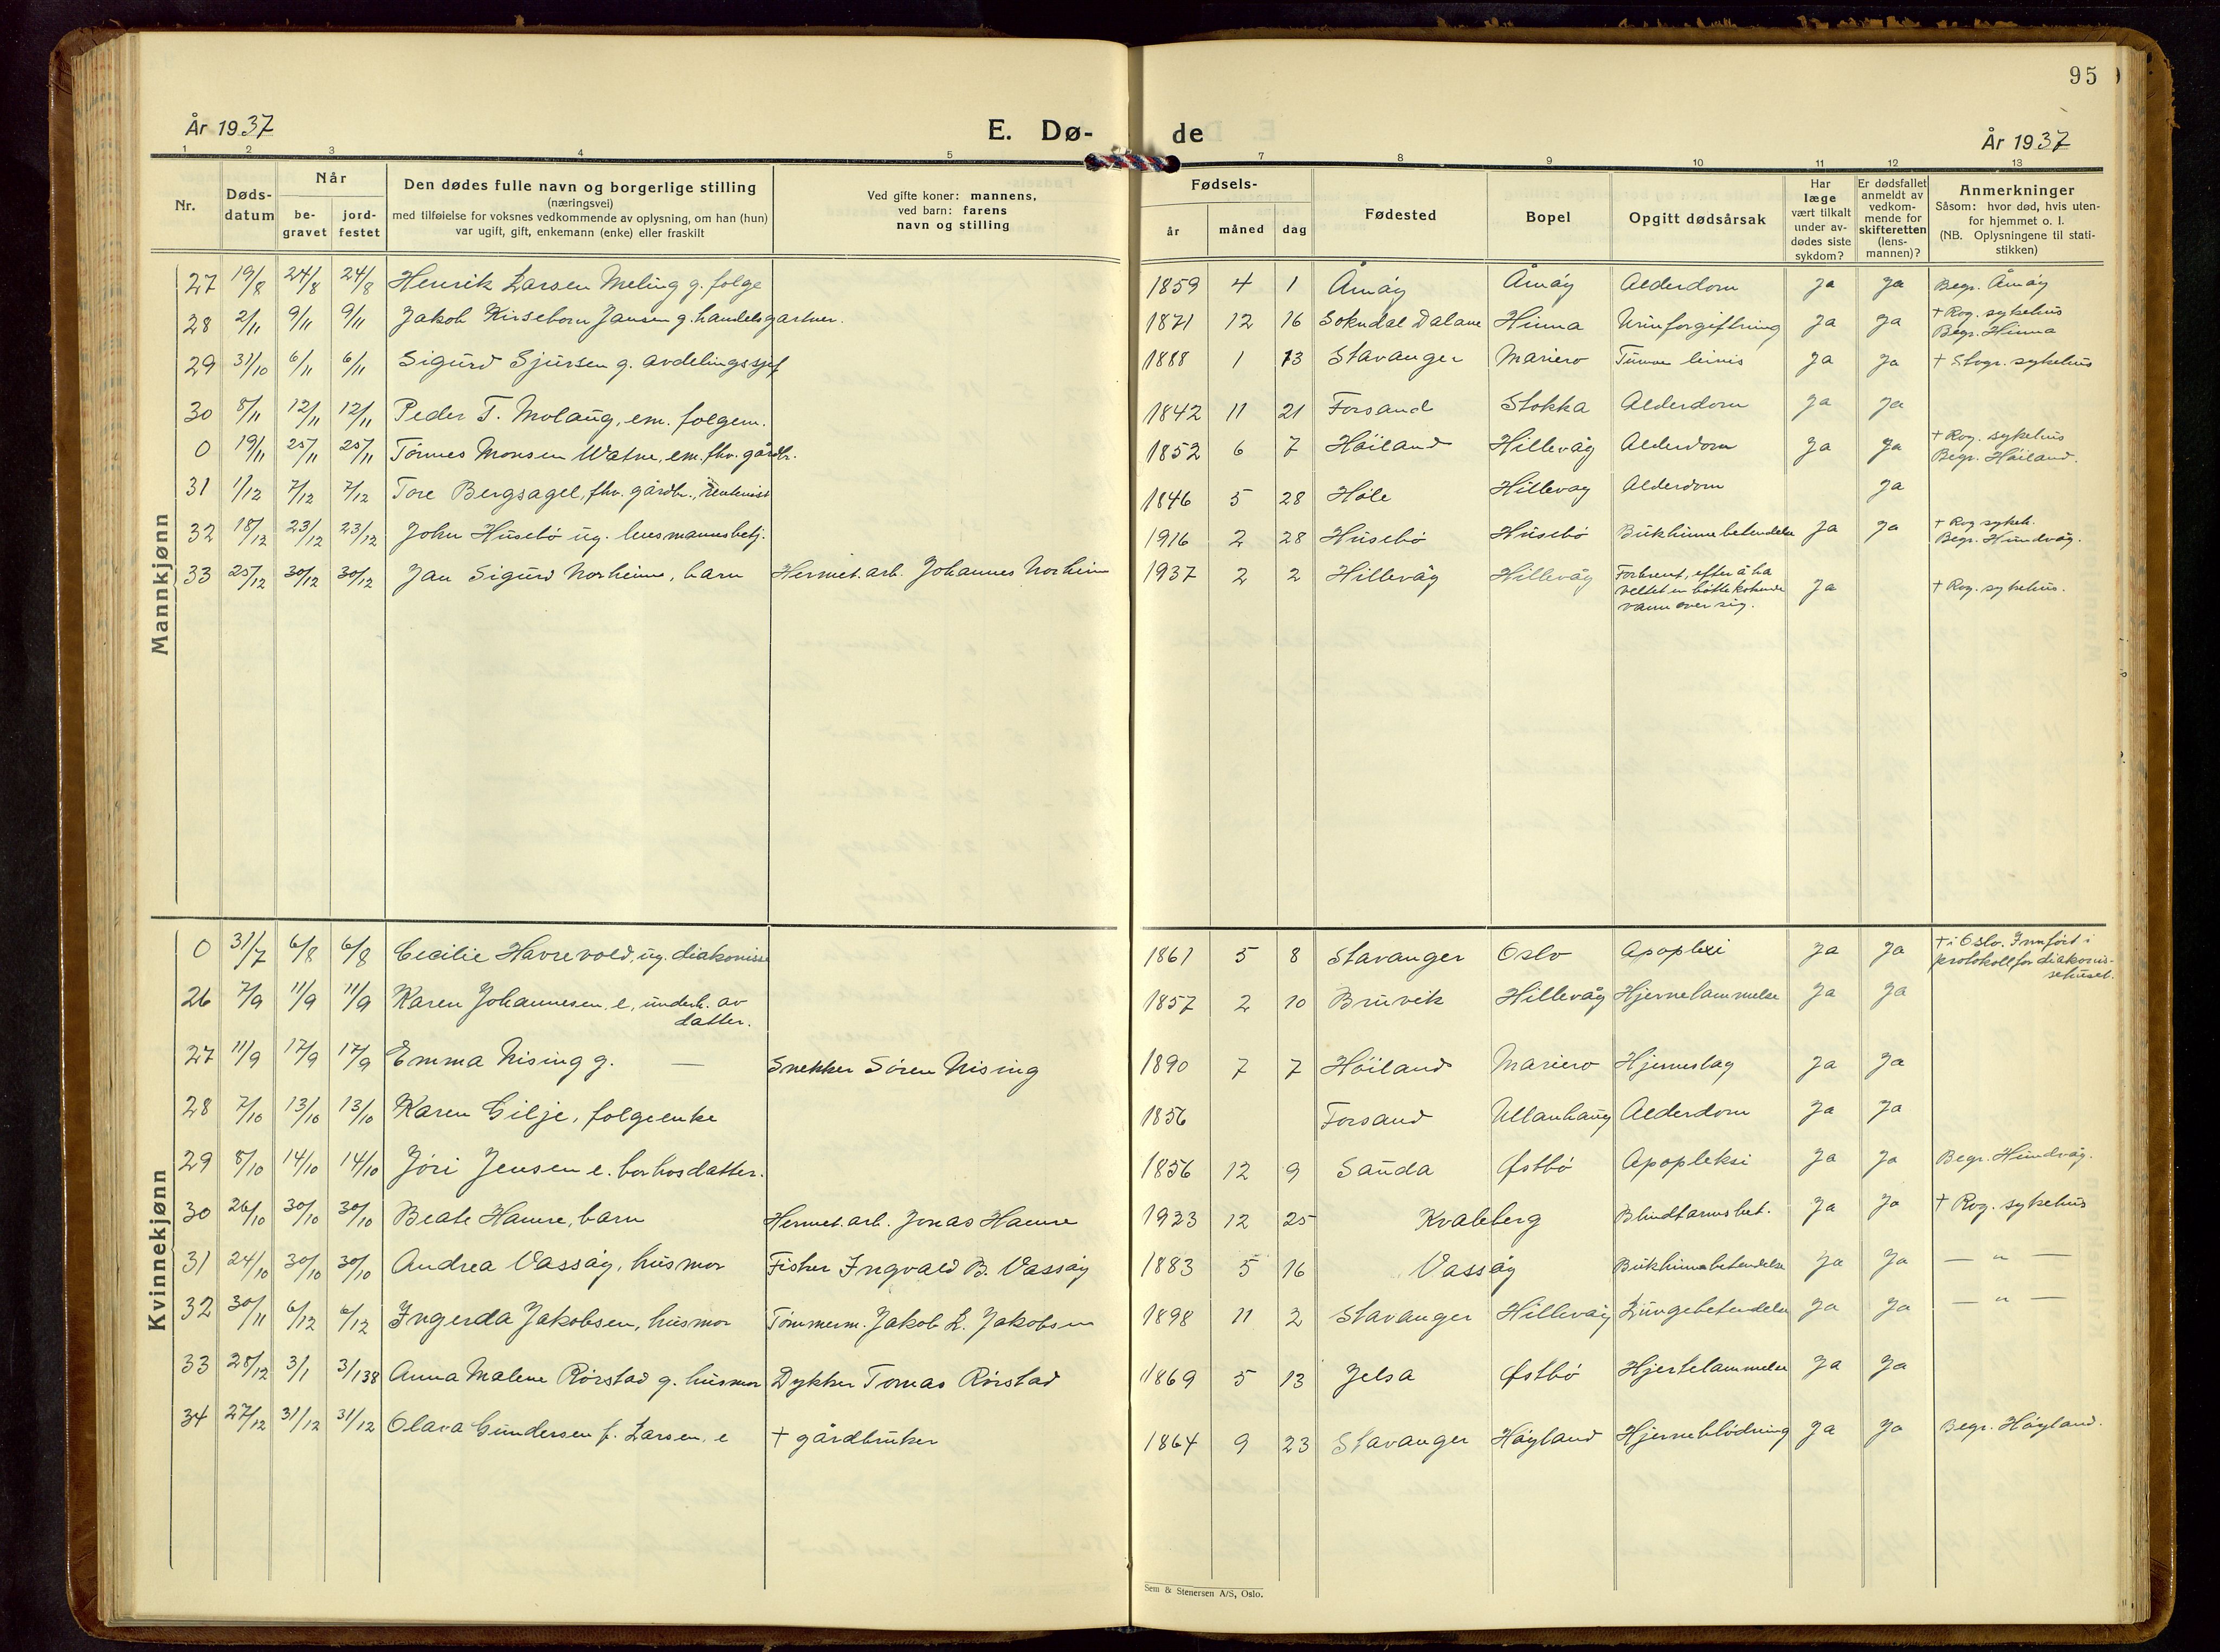 95
År 1937
E. Dø-
de
År 1937
1 2 3 4 5 7 8 9 10 11 12 13
Nr.
Døds-
datum
Når
be-
gravet
jord-
festet
Den dødes fulle navn og borgerlige stilling
(næringsvei)
med tilføielse for voksnes vedkommende av oplysning, om han (hun)
var ugift, gift, enkemann (enke) eller fraskilt
Ved gifte koner: mannens,
ved barn: farens
navn og stilling
Fødsels-
år måned dag
Fødested
Bopel
Opgitt dødsårsak
Har
læge
vært tilkalt
under av-
dødes siste
sykdom?
Er dødsfallet
anmeldt av
vedkom-
mende for
skifteretten
(lens-
mannen)?
Anmerkninger
Såsom: hvor død, hvis uten-
for hjemmet o. l.
(NB. Oplysningene til stati-
stikken)
Mannkjønn
27 19/8 24/8 24/8 Henrik Larsen Meling g. folge 1859 4 1 Åmøy Åmøy Alderdom Ja Ja Begr. Åmøy
28 2/11 9/11 9/11 Jakob Kirseborn Jansen g. handelsgartner. 1871 12 16 Sokndal Dalane Hinna Urinforgiftning Ja Ja + Rog. sykehus
Begr. Hinna
29 31/10 6/11 6/11 Sigurd Sjursen g. avdelingssjef 1888 1 13 Stavanger Mariero Tumor Ja Ja + Stvgr. sykehus
30 8/11 12/11 12/11 Peder T. Molaug, em. folgem. 1842 11 21 Forsand Stokka Alderdom Ja Ja
0 19/11 25/11 25/11 Tønnes Monsen Watne, em. fhv. gårdbr. 1852 6 7 Høiland Hillevåg Alderdom Ja Ja + Rog. sykehus
Begr. Høiland.
31 1/12 7/12 7/12 Tore Bergsagel, fhv. gårdbr., rentenist 1846 5 28 Høle Hillevåg Alderdom Ja
32 18/12 23/12 23/12 John Husebø ug. lensmannsbetj. 1916 2 28 Husebø Husebø Bukhinnebetendelse Ja Ja + Rog sykeh.
Begr. Hundvåg.
33 25/12 30/12 30/12 Jan Sigurd Norheim, barn Hermet. arb. Johannes Norheim 1937 2 2 Hillevåg Hillevåg Forbrent, efter å ha
veltet en bøtte kokende
vann over sig. Ja + Rog. sykehus.
Kvinnekjønn
0 31/7 6/8 6/8 Cecilie Havrevold, ug. diakonisse 1861 5 8 Stavanger Oslo Apoplexi Ja Ja + i Oslo. Innført i
protokoll for diakonis-
sehuset.
26 7/9 11/9 11/9 Karen Johannesen, e, underh. av
datter. 1857 2 10 Bruvik Hillevåg Hjernelammelse Ja Ja
27 11/9 17/9 17/9 Emma Nising g. — Snekker Søren Nising 1890 7 7 Høiland Mariero Hjerneslag Ja Ja
28 7/10 13/10 13/10 Karen Gilje, folgeenke 1856 Forsand Ullanhaug Alderdom Ja Ja
29 8/10 14/10 14/10 Jøri Jensen e. bor hos datter. 1856 12 9 Sauda Østbø Apopleksi Ja Ja Begr. Hundvåg.
30 26/10 30/10 30/10 Beate Hamre, barn Hermet. arb. Jonas Hamre 1923 12 25 Kvaleberg Blindtarmsbet. Ja Ja + Rog. sykehus
31 24/10 30/10 30/10 Andrea Vassøy, husmor Fisker Ingvald B. Vassøy 1883 5 16 Vassøy Bukhinnebetendelse Ja Ja — " —
32 30/11 6/12 6/12 Ingerda Jakobsen, husmor Tømmerm. Jakob L. Jakobsen 1898 11 2 Stavanger Hillevåg Lungebetendelse Ja Ja — " —
33 28/12 3/1 3/1 38 Anna Malene Rørstad g. husmor Dykker Tomas Rørstad 1869 5 13 Jelsa Østbø Hjertelammelse Ja Ja
34 27/12 31/12 31/12 Olava Gundersen f. Larsen, e + gårdbruker 1864 9 23 Stavanger Høyland Hjerneblødning Ja Ja Begr. Høyland.
Sem & Stenersen A/S, Oslo.